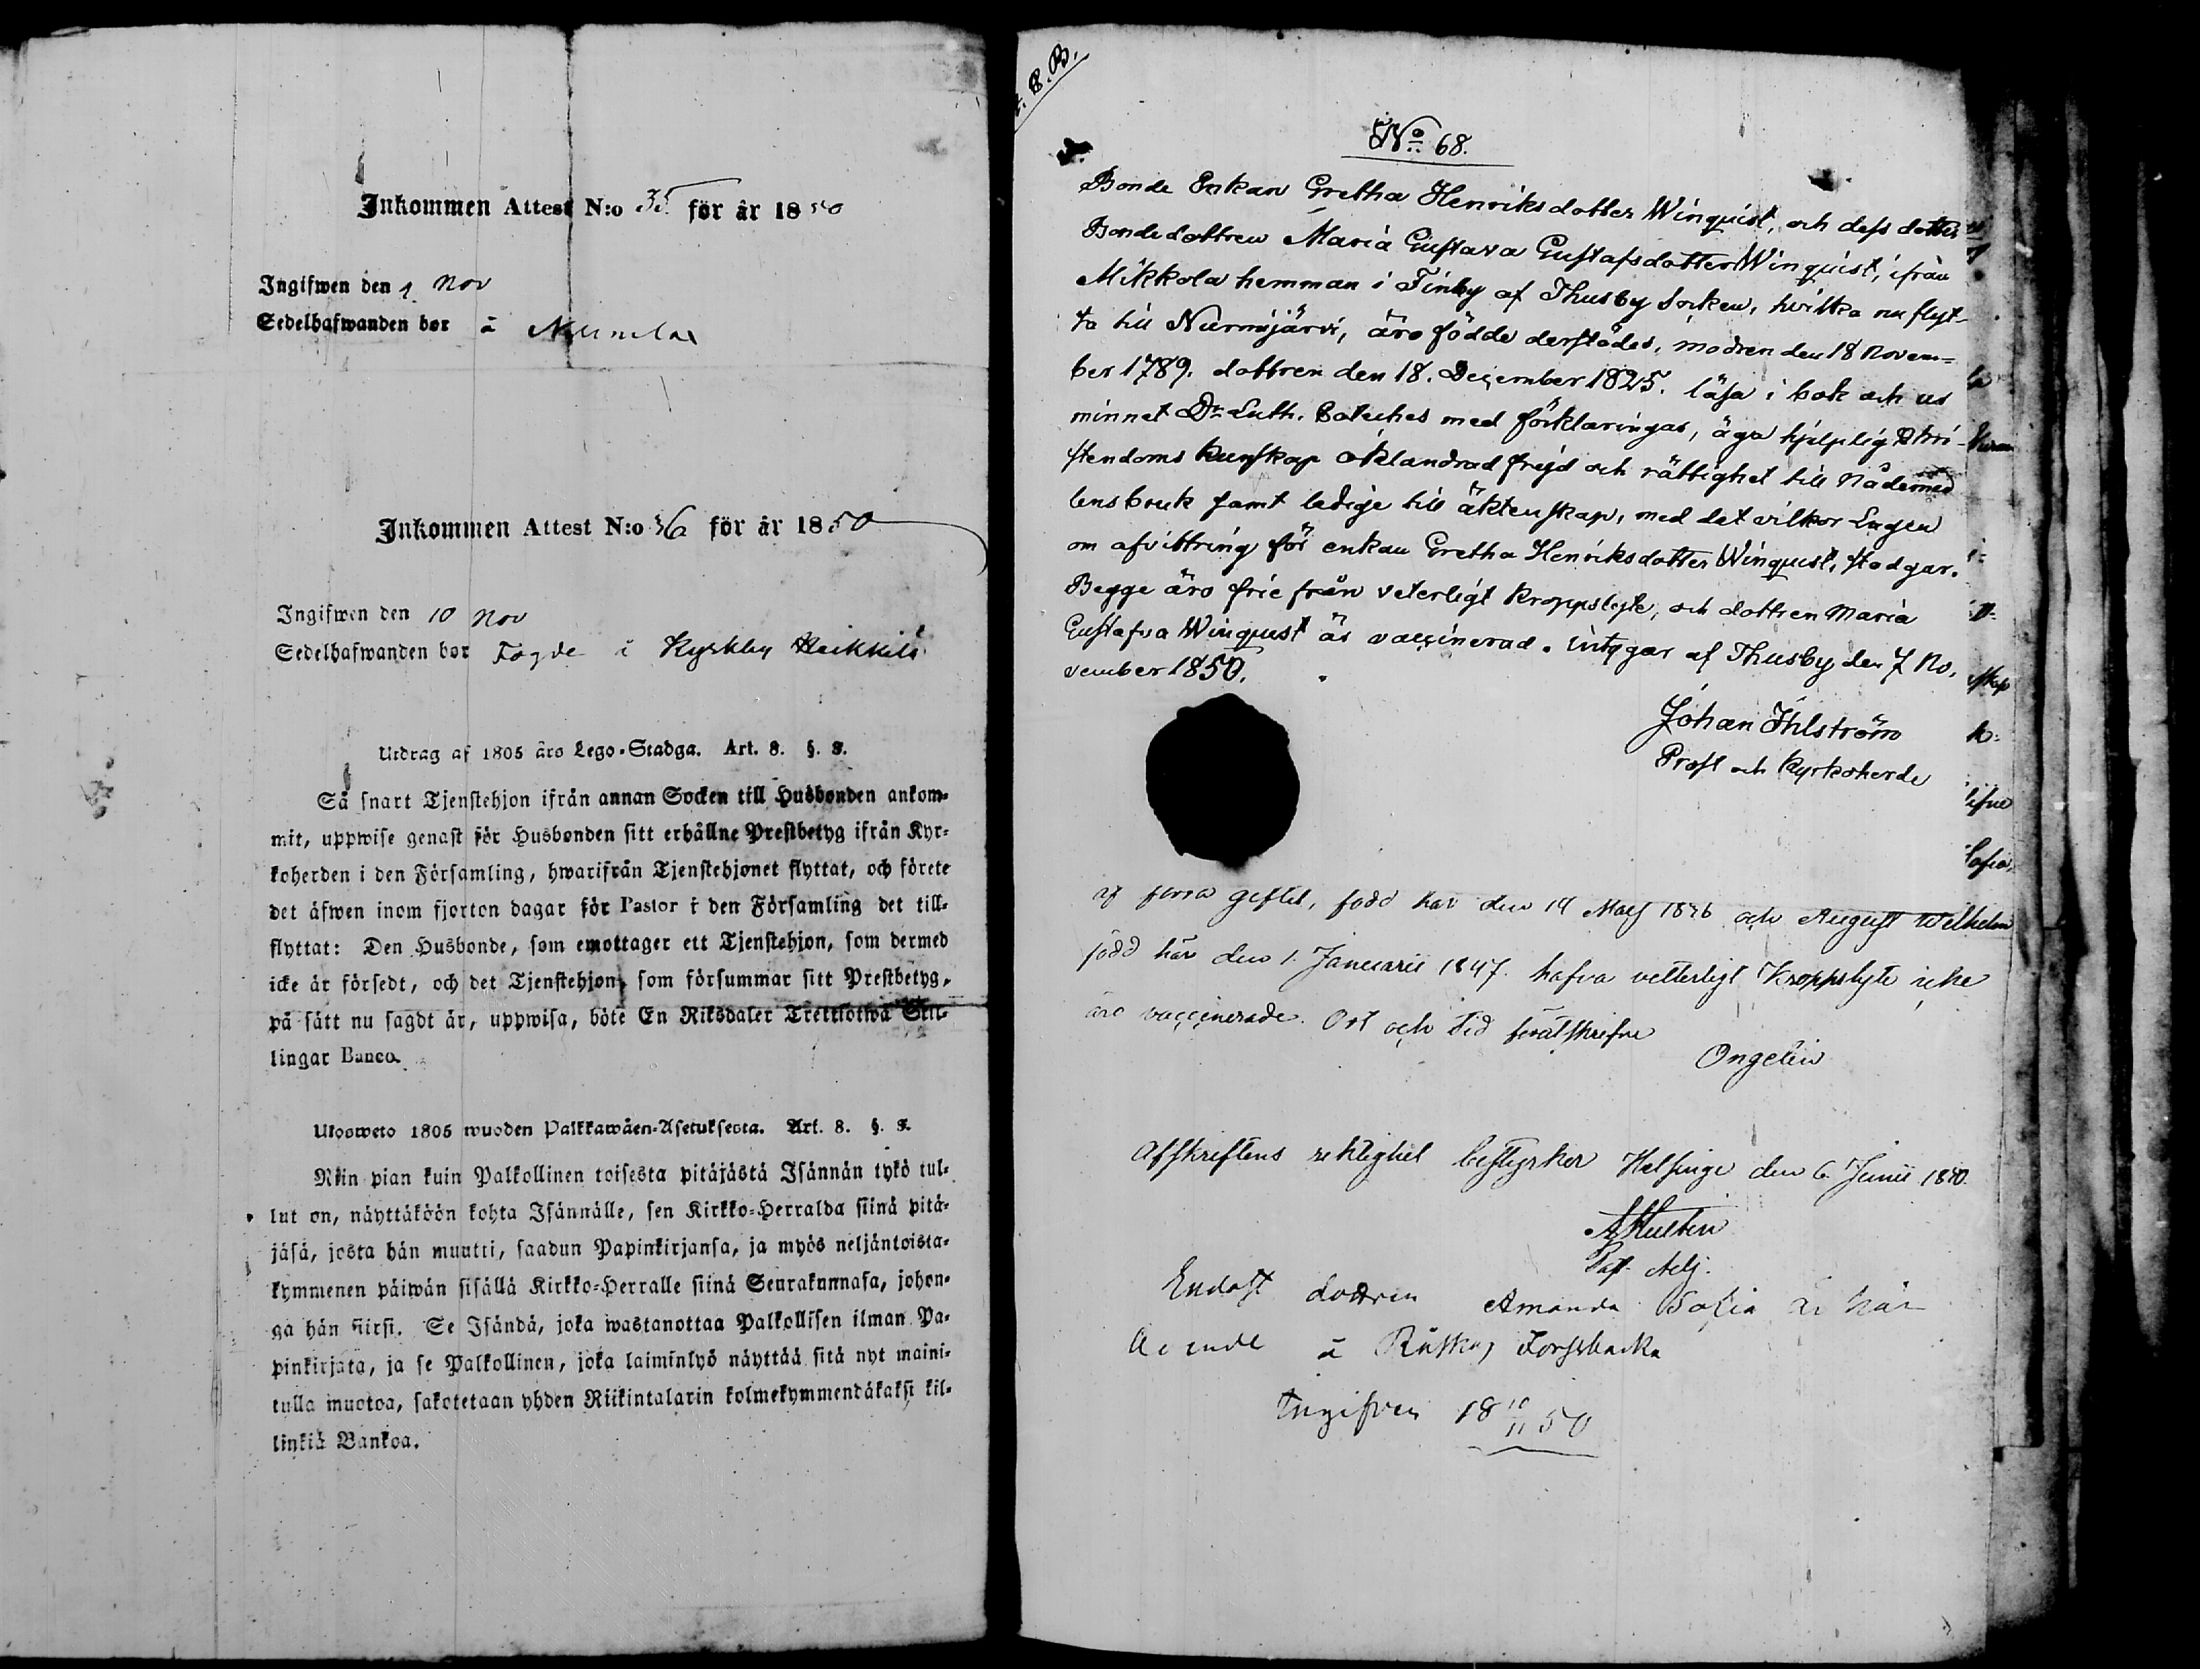 Inkommen Attest N:o 35 för år 1850
Ingifwen den 9 Nov
Sedelhafwanden bor å
Inkommen Attest N:o 36 för år 1850
Ingifwen den 10 Nov
Sedelhafwanden bor i Kyrkby Heikkilä
Utdrag af 1805 års Lego-Stadga. Art. 8. §. 3.
Så snart Tjenstehjon ifrån annan Socken till Husbonden ankom-
mit, uppwise genast för Husbonden sitt erhållne Prestbetyg ifrån Kyr-
koherden i den Församling, hwarifrån Tjenstehjonet flyttat, och förete
det äfwen inom fjorton dagar för Pastor i den Församling det till-
flyttat: Den Husbonde, som emottager ett Tjenstehjon, som dermed
icke är försedt, och det Tjenstehjon, som försummar sitt Prestbetyg,
på sätt nu sagdt är, uppwisa, böte En Riksdaler Trettiotwå Skil-
lingar Banco.
Ulosweto 1805 wuoden Palkkawäen-Asetuksesta. Art. 8. §. 3.
Niin pian kuin Palkollinen toisesta pitäjästä Isännän tykö tul-
lut on, näyttäköön kohta Isännälle, sen Kirkko-Herralda siinä pitä-
jäsä, josta hän muutti, saadun Papinkirjansa, ja myös neljäntoista-
kymmenen päiwän sisällä Kirkko-Herralle siinä Seurakunnasa, johon-
ga hän siirsi. Se Isändä, joka wastanottaa Palkollisen ilman Pa-
pinkirjata, ja se Palkollinen, joka laiminlyö näyttää sitä nyt maini-
tulla muotoa, sakotetaan yhden Riikintalarin kolmekymmendäkaksi kil-
linkiä Bankoa.
No 68.
Bonde Enkan Gretha Henriksdotter Winquist, och dess dotter
Bondedottren Maria Gustava Gustafsdotter Winquist, ifrån
Mikkola hemman i Finby af Thusby Socken, hvilka nu flyt-
ta till Nurmijärvi, äro födde derstädes, modren den 18 Novem-
ber 1789. dottren den 18. December 1825. läsa i bok och ur
minnet Dr Luth. Cateches med förklaringar, äga hjelplig Chri-
stendoms kunskap oklandrad frejd och rättighet till Nådemed
lens bruk samt ledige till äktenskap, med det vilkor Lagen
om afvittring för enkan Gretha Henriksdotter Winquist, stadgar.
Begge äro frie från veterligt kroppslyte, och dottren Maria
Gustafva Winquist är vaccinerad. intygar af Thusby den 7 No.
vember 1850.
Johan Ihlström
Prost och Kyrkoherde
af förra giftet, född här den 19 Maj 1846 och August Wilhelm
född här den 1. Januarii 1847. hafva vetterligt Kroppslyte icke
äro vaccinerade. Ort och tid förutskrifne
Ongelin
Afskriftens riktighet bestyrker Helsinge den 6 Junii 1850.
Endast dottren Amanda Sofia är här
å Forssbacka
Ingifven 18 10/11 50